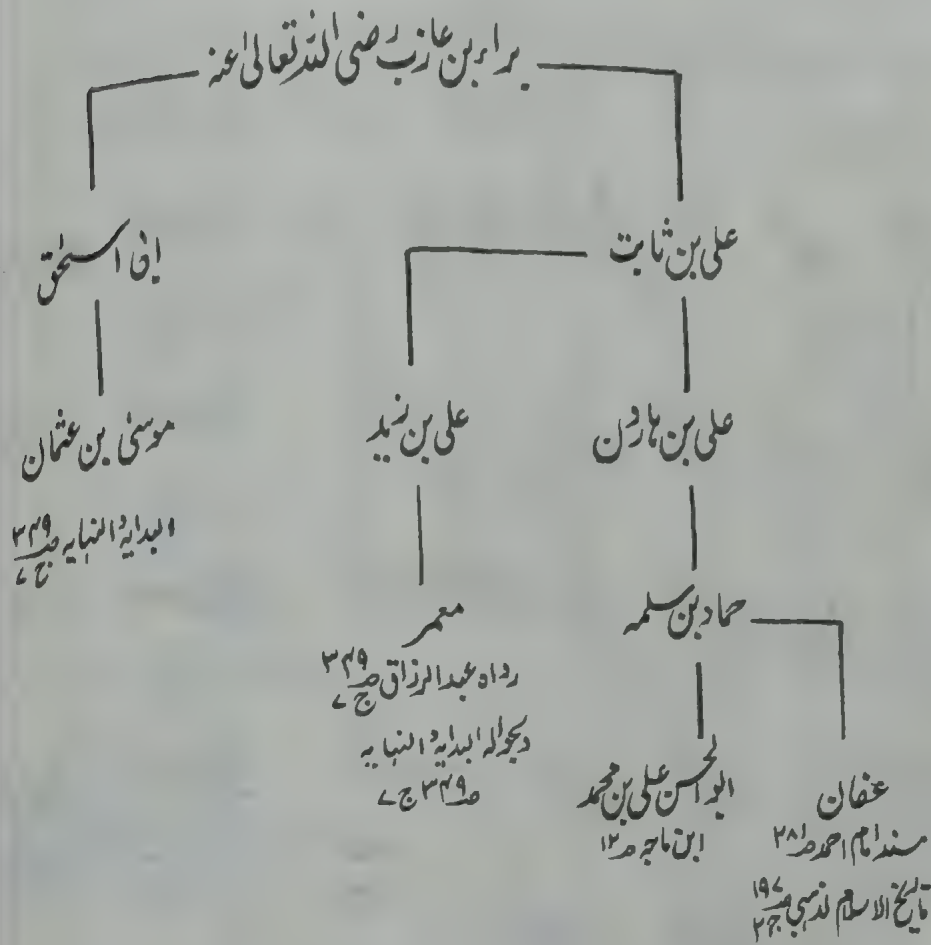 براء بن عازب رضی اللہ تعالیٰ عنہ
علی بن ثابت
ابی اسحٰق
علی بن ہارون
علی بن زید
موسیٰ بن عثمان
البدایۃ النہایہ ص۳۴۹ ج ۷
حماد بن سلمہ
معمر
رواہ عبد الرزاق ص۳۴۹ ج ۷
بحوالہ البدایۃ النہایہ
ص۳۴۹ ج ۷
عفان
مسند امام احمد ص۲۸۱
تاریخ الاسلام لذہبی ص۱۹۷ ج۲
ابو الحسن علی بن محمد
ابن ماجہ ص۱۲